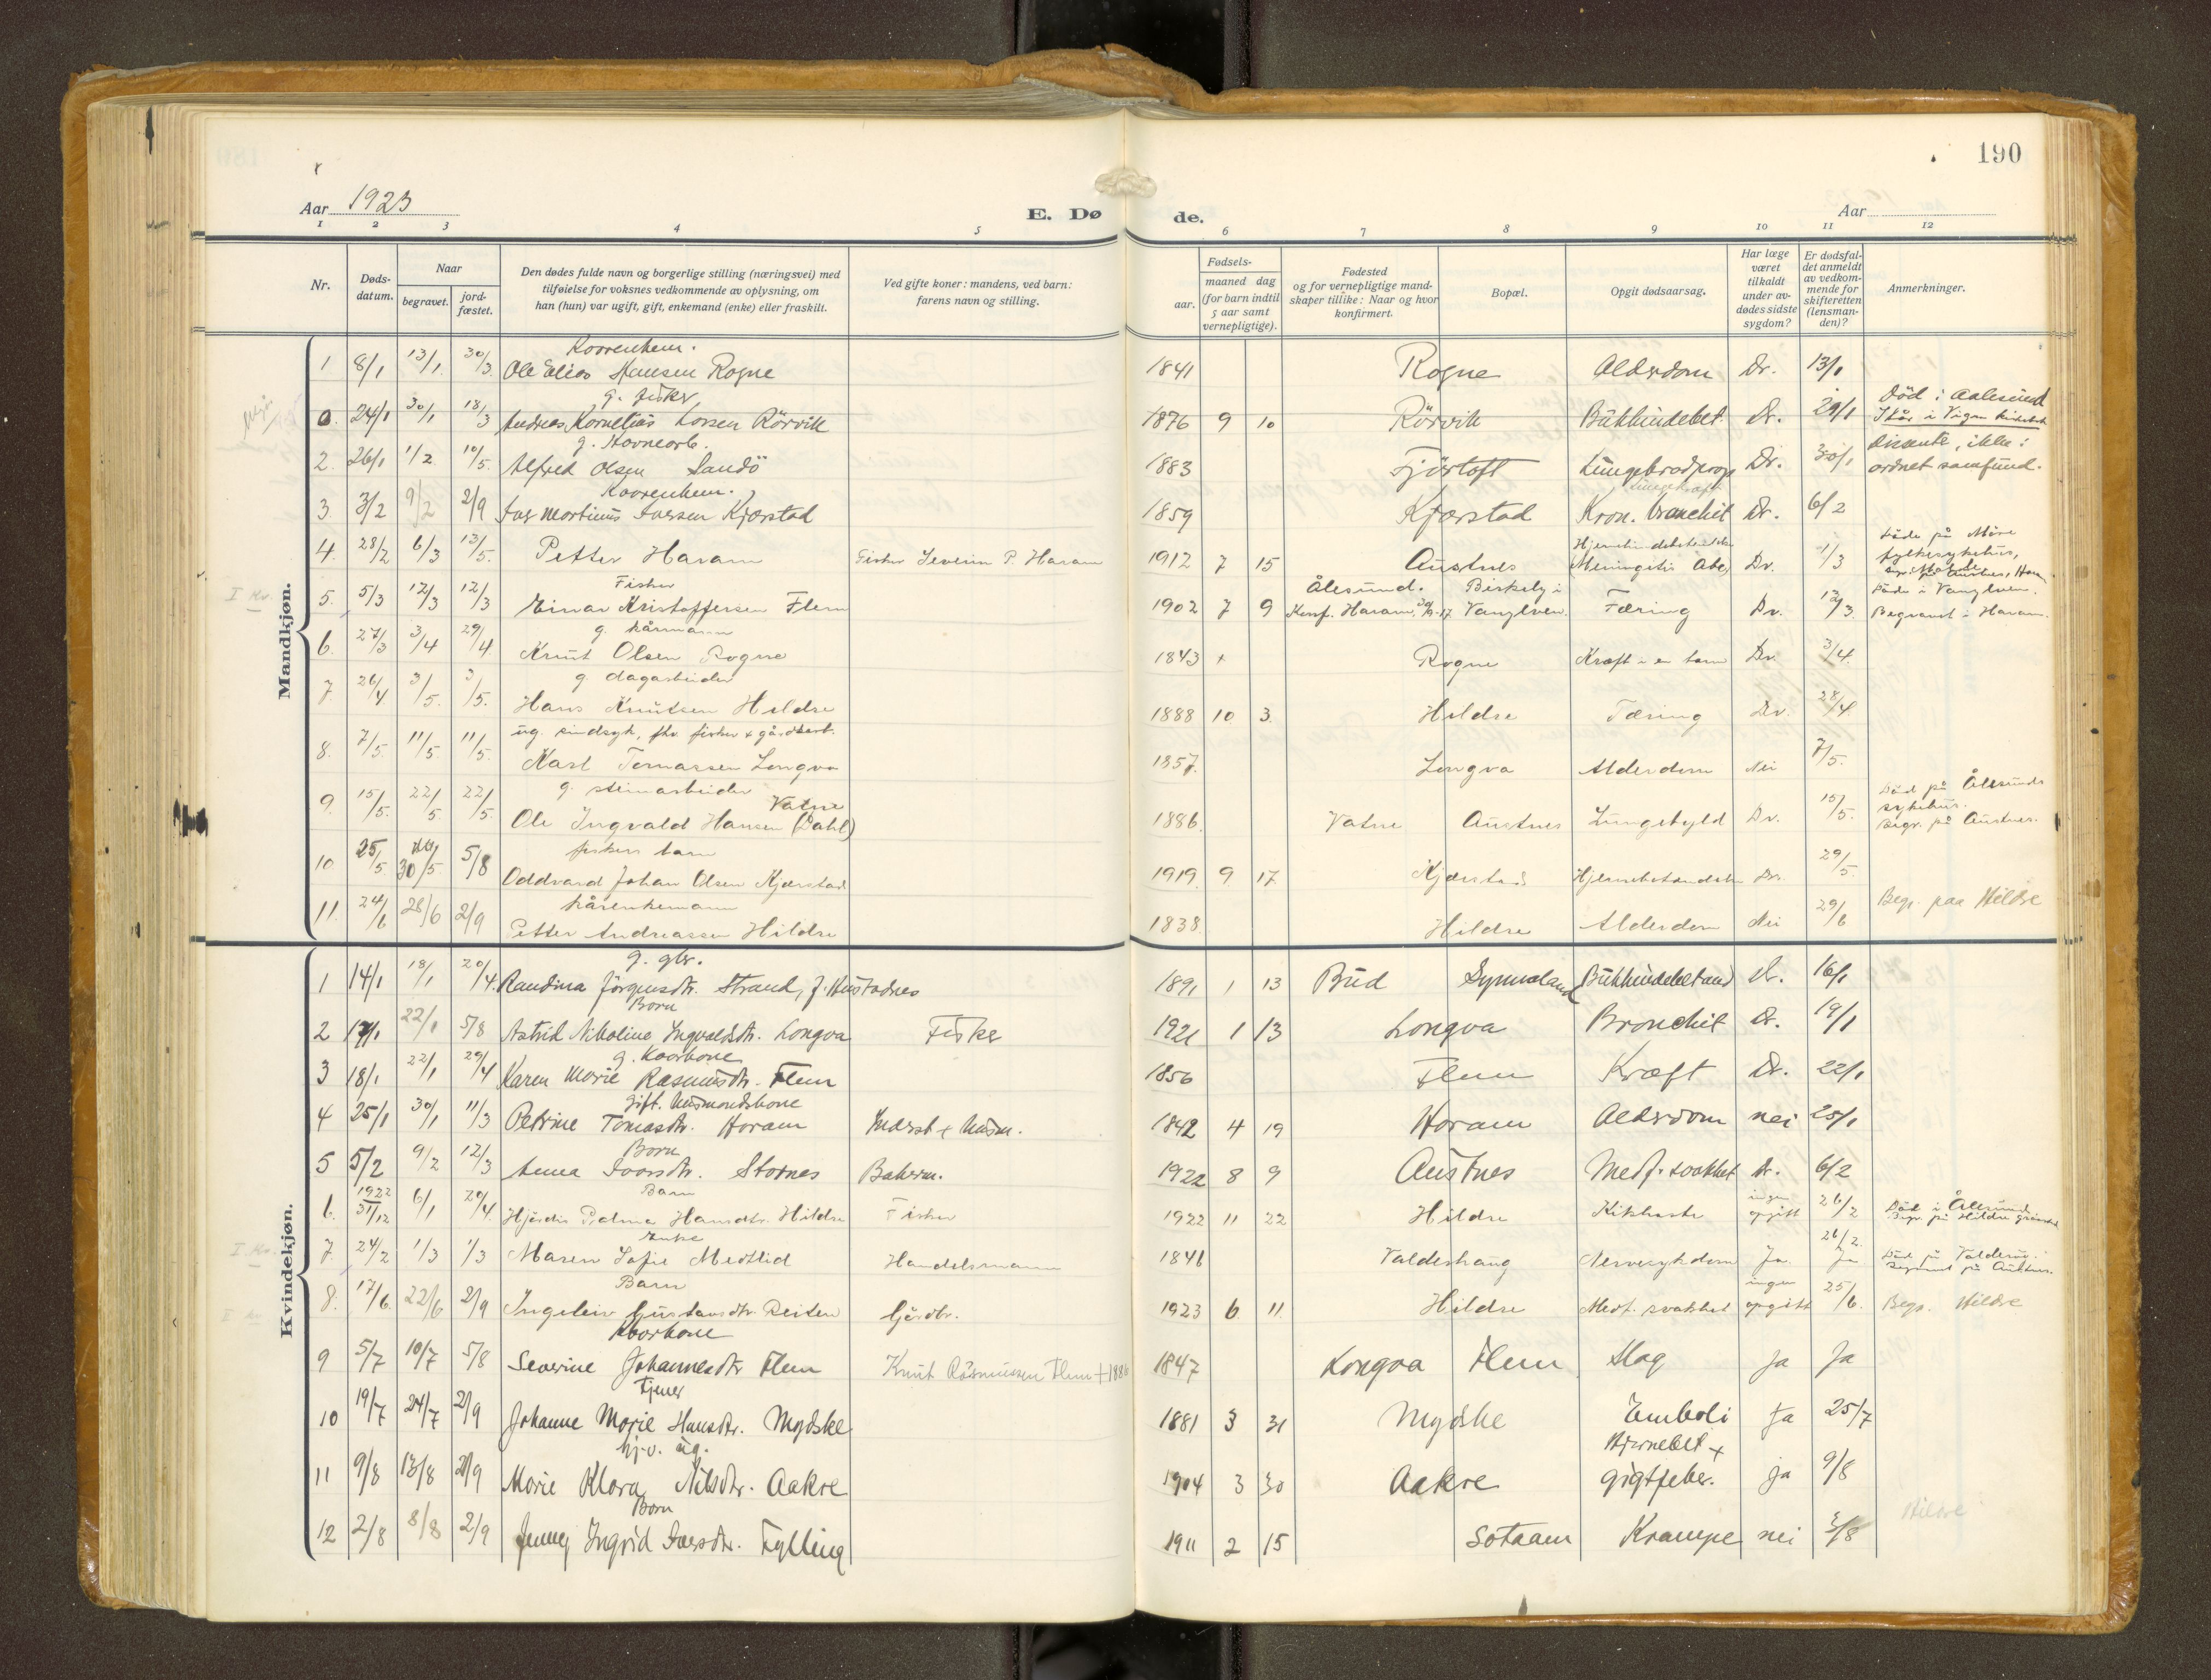 190
Aar 1923
E. Døde.
Aar
1 2 3 4 5 6 7 8 9 10 11 12
Nr.
Døds-datum.
Naar
begravet.
jord-fæstet.
Den dødes fulde navn og borgerlige stilling (næringsvei) med
tilføielse for voksnes vedkommende av oplysning, om
han (hun) var ugift, gift, enkemand (enke) eller fraskilt.
Ved gifte koner: mandens, ved barn:
farens navn og stilling.
Fødsels-
aar.
maaned dag
(for barn indtil
5 aar samt
vernepligtige).
Fødested
og for vernepligtige mand-
skaper tillike: Naar og hvor
konfirmert.
Bopæl.
Opgit dødsaarsag.
Har læge
været
tilkaldt
under av-
dødes sidste
sygdom?
Er dødsfal-
det anmeldt
av vedkom-
mende for
skifteretten
(lensman-
den)?
Anmerkninger.
Mandkjøn.
1 8/1 13/1 30/3 Ole Elias Hansen Rogne 1841 Rogne Alderdom Dr. 13/1
g. fisker
0. 24/1 30/1 18/3 Andreas Kornelius Larsen Rörvik 1876 9 10 Rörvik Bukhindebet. Dr. 29/1 Död i Aalesund
2. 26/1 1/2 10/5. Alfred Olsen Sandö 1883 Fjörtoft Dr. 30/1 Dissente, ikke i
ordnet samfund.
3. 3/2 9/2 2/9 Iver Martinus Iversen Kjærstad 1859 Kjærstad Kron. bronchit Dr. 6/2
4. 28/2 6/3 13/5. Petter Haram Fisker Severin P. Haram 1912 7 15 Austnes Dr. 1/3 Døde på Møre
fylkesykehus,
Fisker
5. 5/3 12/3 12/3 Einar Kristoffersen Flem 1902 7 9 Ålesund. Konf. Haram Birkely i Vanylven. Tæring Dr. 12/3 Døde i Vanylven.
Begravet i Haram.
g. kårmann
6. 27/3 3/4 29/4 Knut Olsen Rogne 1843 + Rogne Kræft Dr. 3/4
g. dagarbeider
7. 26/4 3/5. 3/5. Hans Knutsen Hildre 1888 10 3. Hildre Tæring Dr. 28/4
ug. sindsyk, fhv. fisker & gårdsarb.
8. 7/5. 11/5 11/5. Karl Tomassen Longva 1857. Longva Alderdom Nei 7/5.
g. steinarbeider
9. 15/5. 22/5 22/5. Ole Ingvald Hansen Vatne (Dahl) 1886. Vatne Austnes Lungebyld Dr. 15/5. Död på Ålesunds
sykehus.
Begr. på Austnes.
fiskers barn
10. 25/5. 30/5. 5/8 Oddvard Johan Olsen Kjærstad 1919. 9 17. Kjærstad Hjernebetændelse Dr. 29/5.
kårenkemann
11. 24/6 28/6 2/9 Petter Andreassen Hildre 1838. Hildre Alderdom Nei 29/6 Begr. paa Hildre
Kvindekjøn.
g. gbr.
1 14/1 18/1 20/4. Randina Jörgensdtr. Strand, f. Hustadnes 1891 1 13 Bud Symnaland Bukhindebetænd Dr. 16/1
Barn
2 17/1 22/1 5/8 Astrid Nikoline Ingvaldsdtr. Longva Fisker 1921 1 13 Longva Bronchit Dr. 19/1
g. Kaarkone
3 18/1 22/1 29/4 Karen Marie Rasmusdtr. Flem 1856 Flem Kræft Dr. 22/1
gift. Husmandskone
4 25/1 30/1 11/3 Petrine Tomasdtr. Haram Inderst & Husm. 1842 4 19 Haram Alderdom nei 25/1
Barn
5 5/2 9/2 12/3 Anna Ivarsdtr. Stornes Bakerm. 1922 8 9 Austnes Medf. svakhet Dr. 6/2
Barn
6. 1922 31/12 6/1 20/4. Hjördis Palma Hansdtr. Hildre Fisker 1922 11 22 Hildre Kikhoste ingen opgitt 26/2 Död i Ålesund.
Enke
7. 24/2 1/3 1/3 Maren Sofie Medtlid Handelsmann 1846 Valdershaug Nervesykdom Ja 26/2. Ja Död på Valderøy.
Begravet på Austnes.
Barn
8. 17/6. 22/6 2/9 Ingeleiv Gustavsdtr. Reiten Gårdbr. 1923 6 11. Hildre Medf. svakhet ingen opgitt 25/6. Begr. Hildre
Kaarkone
9 5/7 10/7 5/8 Severine Johannesdtr Flem Knut Rasmussen Flem + 1886 1847 Longva Flem Slag Ja Ja
Tjener
10 19/7 24/7 2/9 Johanne Marie Hansdtr. Mydske 1881 3 31 Mydske Emboli Ja 25/7
hj.v. ug.
11 9/8 13/8 2/9 Marie Klara Nilsdtr. Aakre 1904 3 30 Aakre Hjernebet +
gigtfeber. ja 9/8
Barn
12 2/8 8/8 2/9 Jenny Ingrid Iversdtr. Fylling 1911 2 15 Sotaam Krampe nei 3/8 Hildre